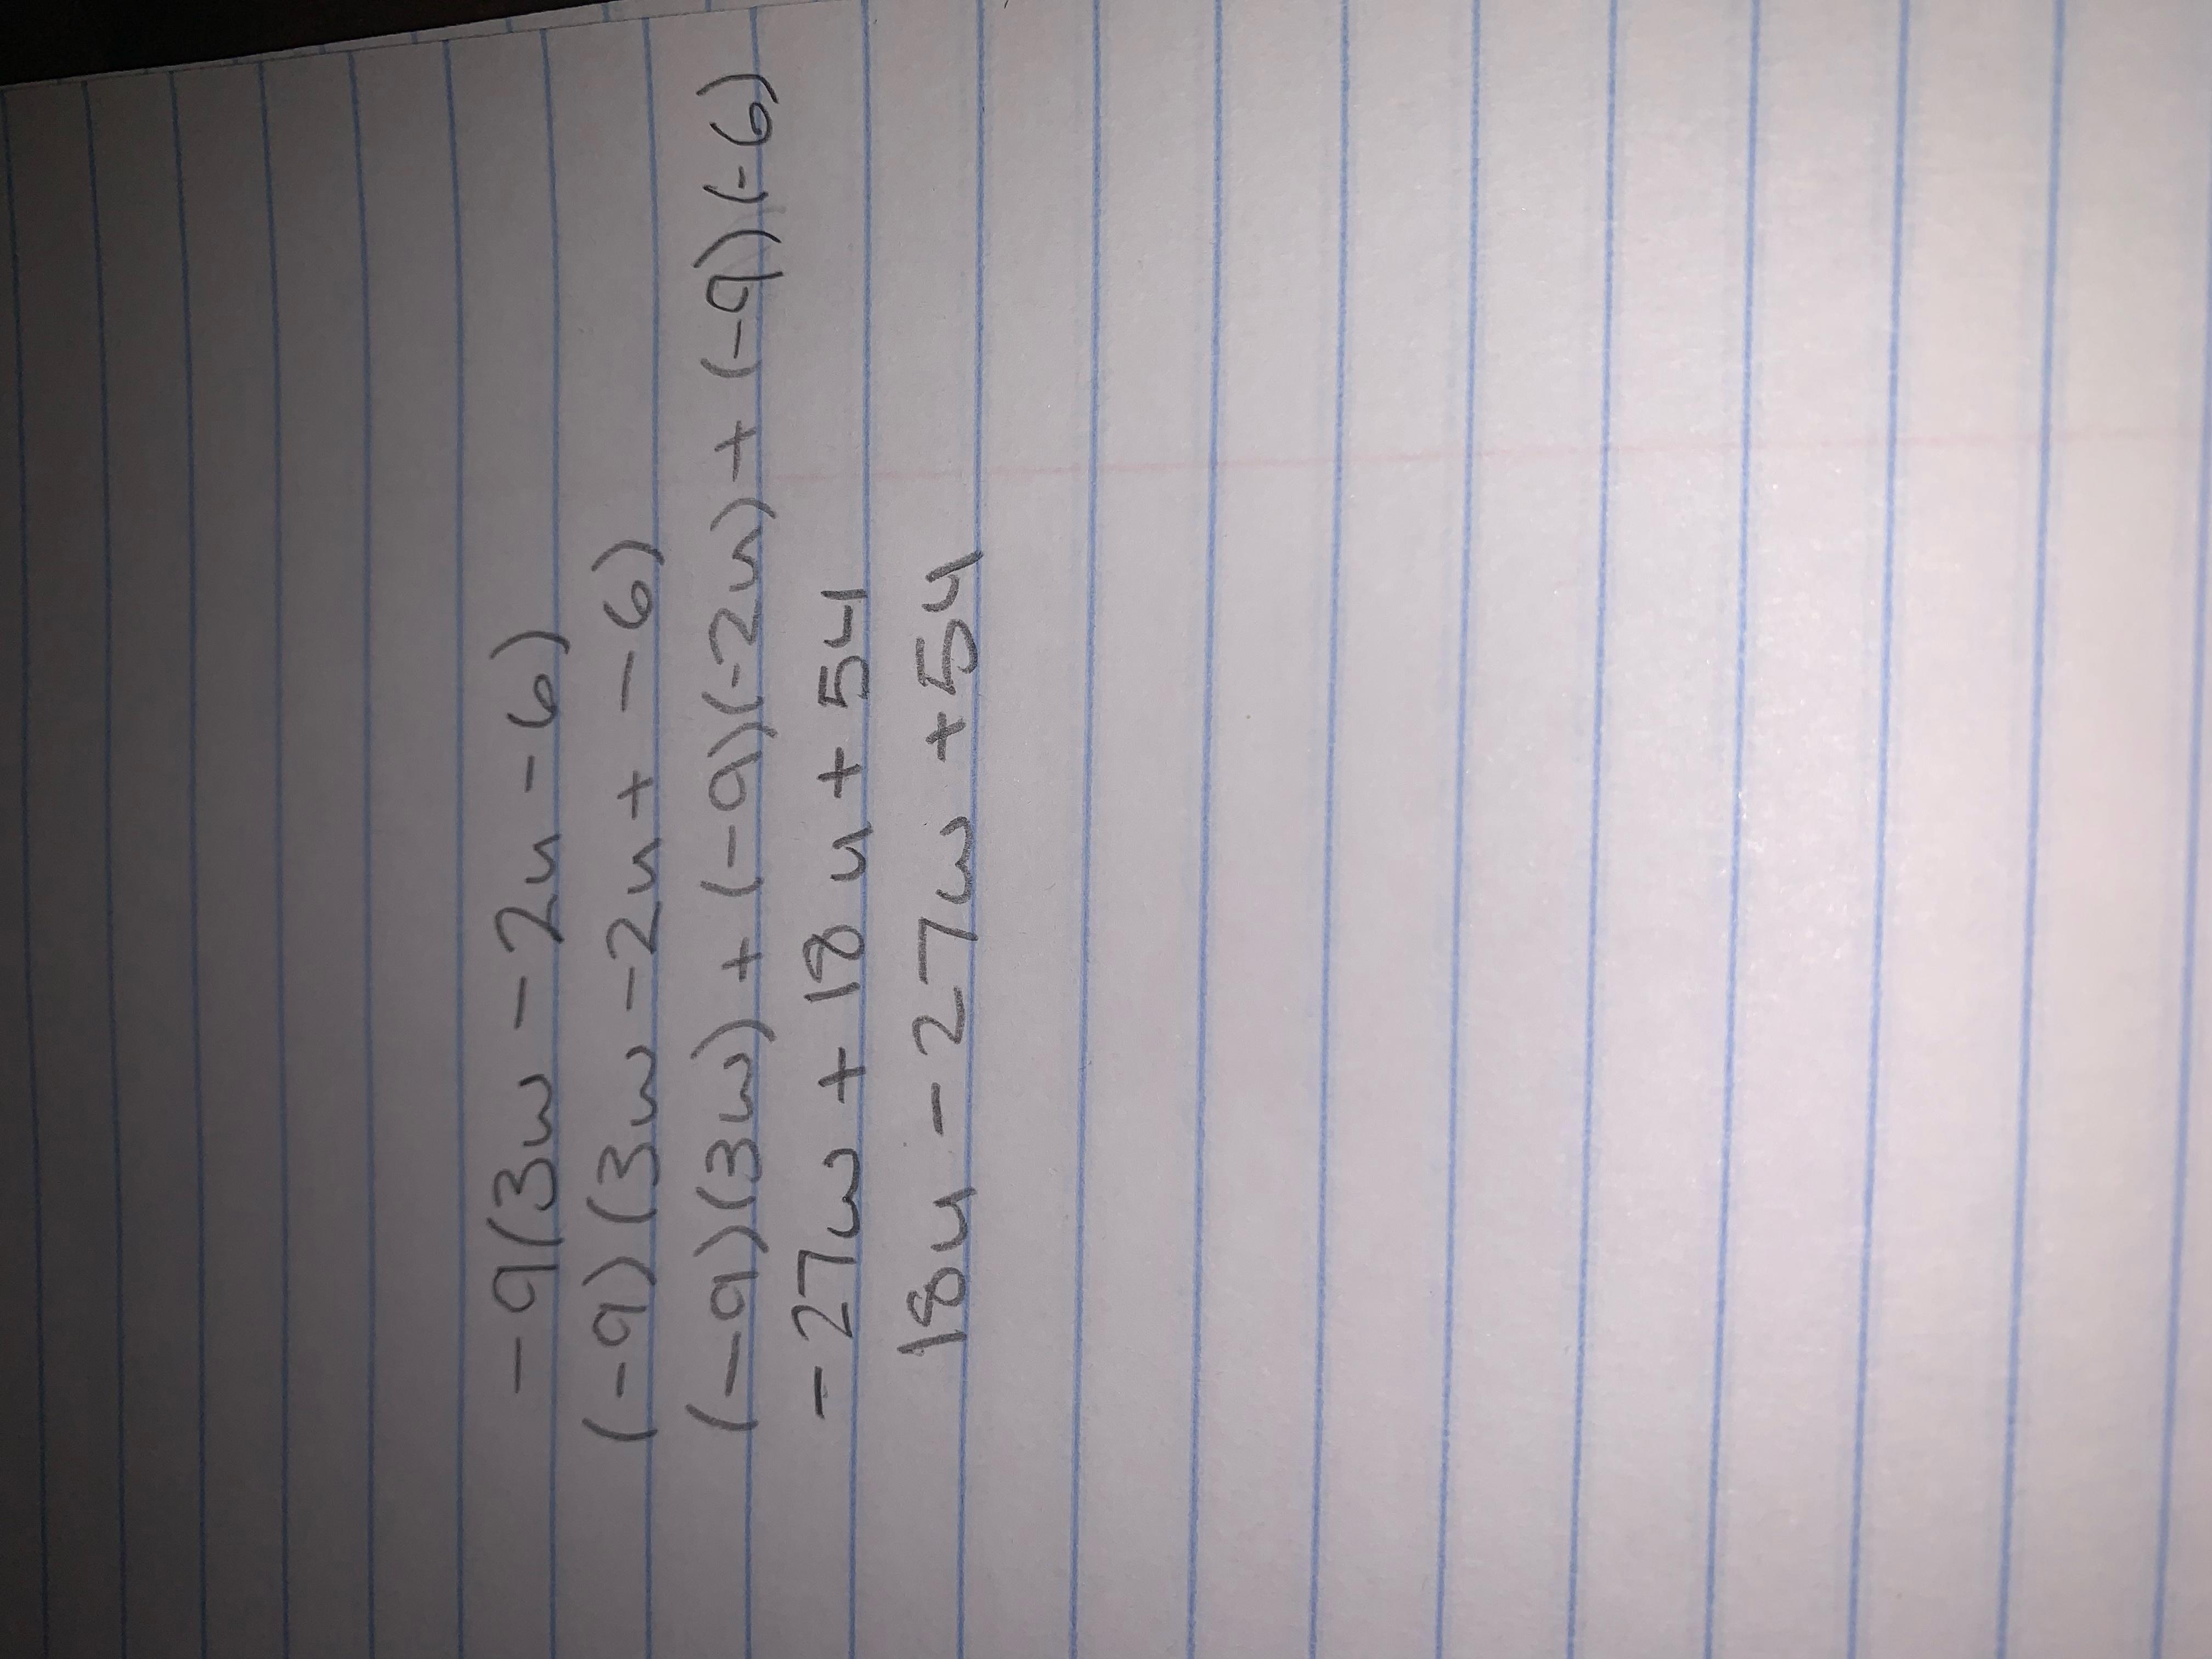 -9(3w - 2u - 6)
(-9)(3w - 2u + -6)
(-9)(3w) + (-9)(-2u) + (-9)(-6)
-27w + 18u + 54
18u - 27w + 54